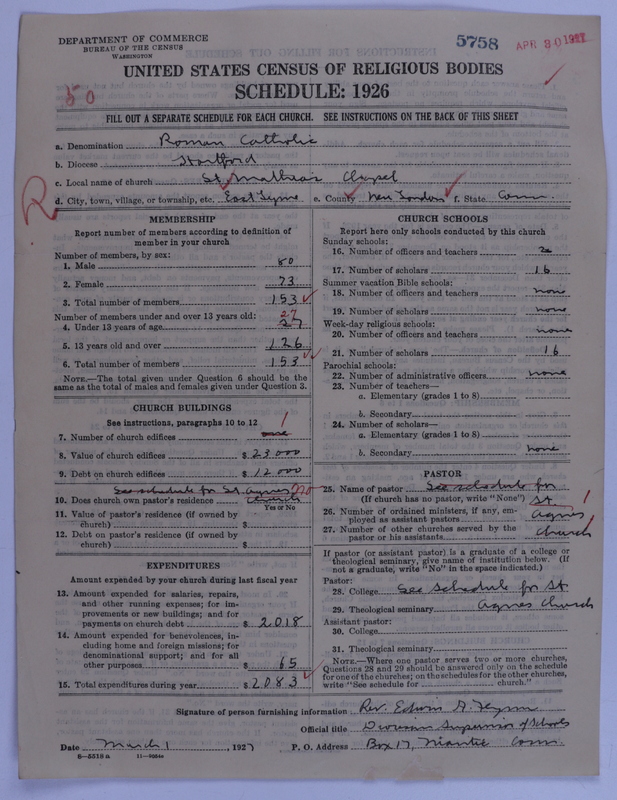 DEPARTMENT OF COMMERCE
BUREAU OF THE CENSUS
WASHINGTON
5758
APR 30 1927
UNITED STATES CENSUS OF RELIGIOUS BODIES
SCHEDULE: 1926
50
FILL OUT A SEPARATE SCHEDULE FOR EACH CHURCH. SEE INSTRUCTIONS ON THE BACK OF THIS SHEET
a. Denomination Roman Catholic
b. Diocese Hartford
c. Local name of church St Chapel
d. City, town, village, or township, etc. East Lyme e. County New London f. State Conn.
R
MEMBERSHIP
Report number of members according to definition of
member in your church
Number of members, by sex:
1. Male 80
2. Female 73
3. Total number of members 153
Number of members under and over 13 years old: 27
4. Under 13 years of age 27
5. 13 years old and over 126
6. Total number of members 153
NOTE.—The total given under Question 6 should be the
same as the total of males and females given under Question 3.
CHURCH BUILDINGS
See instructions, paragraphs 10 to 12
7. Number of church edifices one 1
8. Value of church edifices $ 23 000
9. Debt on church edifices $ 12 000
See schedule for St. Agnes no
10. Does church own pastor's residence Church
Yes or No
11. Value of pastor's residence (if owned by
church) $
12. Debt on pastor's residence (if owned by
church) $
EXPENDITURES
Amount expended by your church during last fiscal year
13. Amount expended for salaries, repairs,
and other running expenses; for im-
provements or new buildings; and for
payments on church debt $ 2018
14. Amount expended for benevolences, in-
cluding home and foreign missions; for
denominational support; and for all
other purposes $ 65
15. Total expenditures during year $ 2083
CHURCH SCHOOLS
Report here only schools conducted by this church
Sunday schools:
16. Number of officers and teachers
17. Number of scholars 16
Summer vacation Bible schools:
18. Number of officers and teachers none
19. Number of scholars none
Week-day religious schools:
20. Number of officers and teachers none
21. Number of scholars 16
Parochial schools:
22. Number of administrative officers none
23. Number of teachers—
a. Elementary (grades 1 to 8)
b. Secondary
24. Number of scholars—
a. Elementary (grades 1 to 8)
b. Secondary none
PASTOR
25. Name of pastor See schedule for
(If church has no pastor, write "None") St.
26. Number of ordained ministers, if any, em-
ployed as assistant pastors Agnes 1
27. Number of other churches served by the
pastor or his assistants church 1
If pastor (or assistant pastor) is a graduate of a college or
theological seminary, give name of institution below. (If
not a graduate, write "No" in the space indicated.)
Pastor:
28. College See schedule for St
29. Theological seminary Agnes Church
Assistant pastor:
30. College
31. Theological seminary
NOTE.—Where one pastor serves two or more churches,
Questions 28 and 29 should be answered only on the schedule
for one of the churches; on the schedules for the other churches,
write "See schedule for church."
Signature of person furnishing information Rev. Edwin
Official title Diocesan Supervisor of Schools
Date March 1, 1927 P. O. Address Box 17, Niantic Conn.
8—5518 a